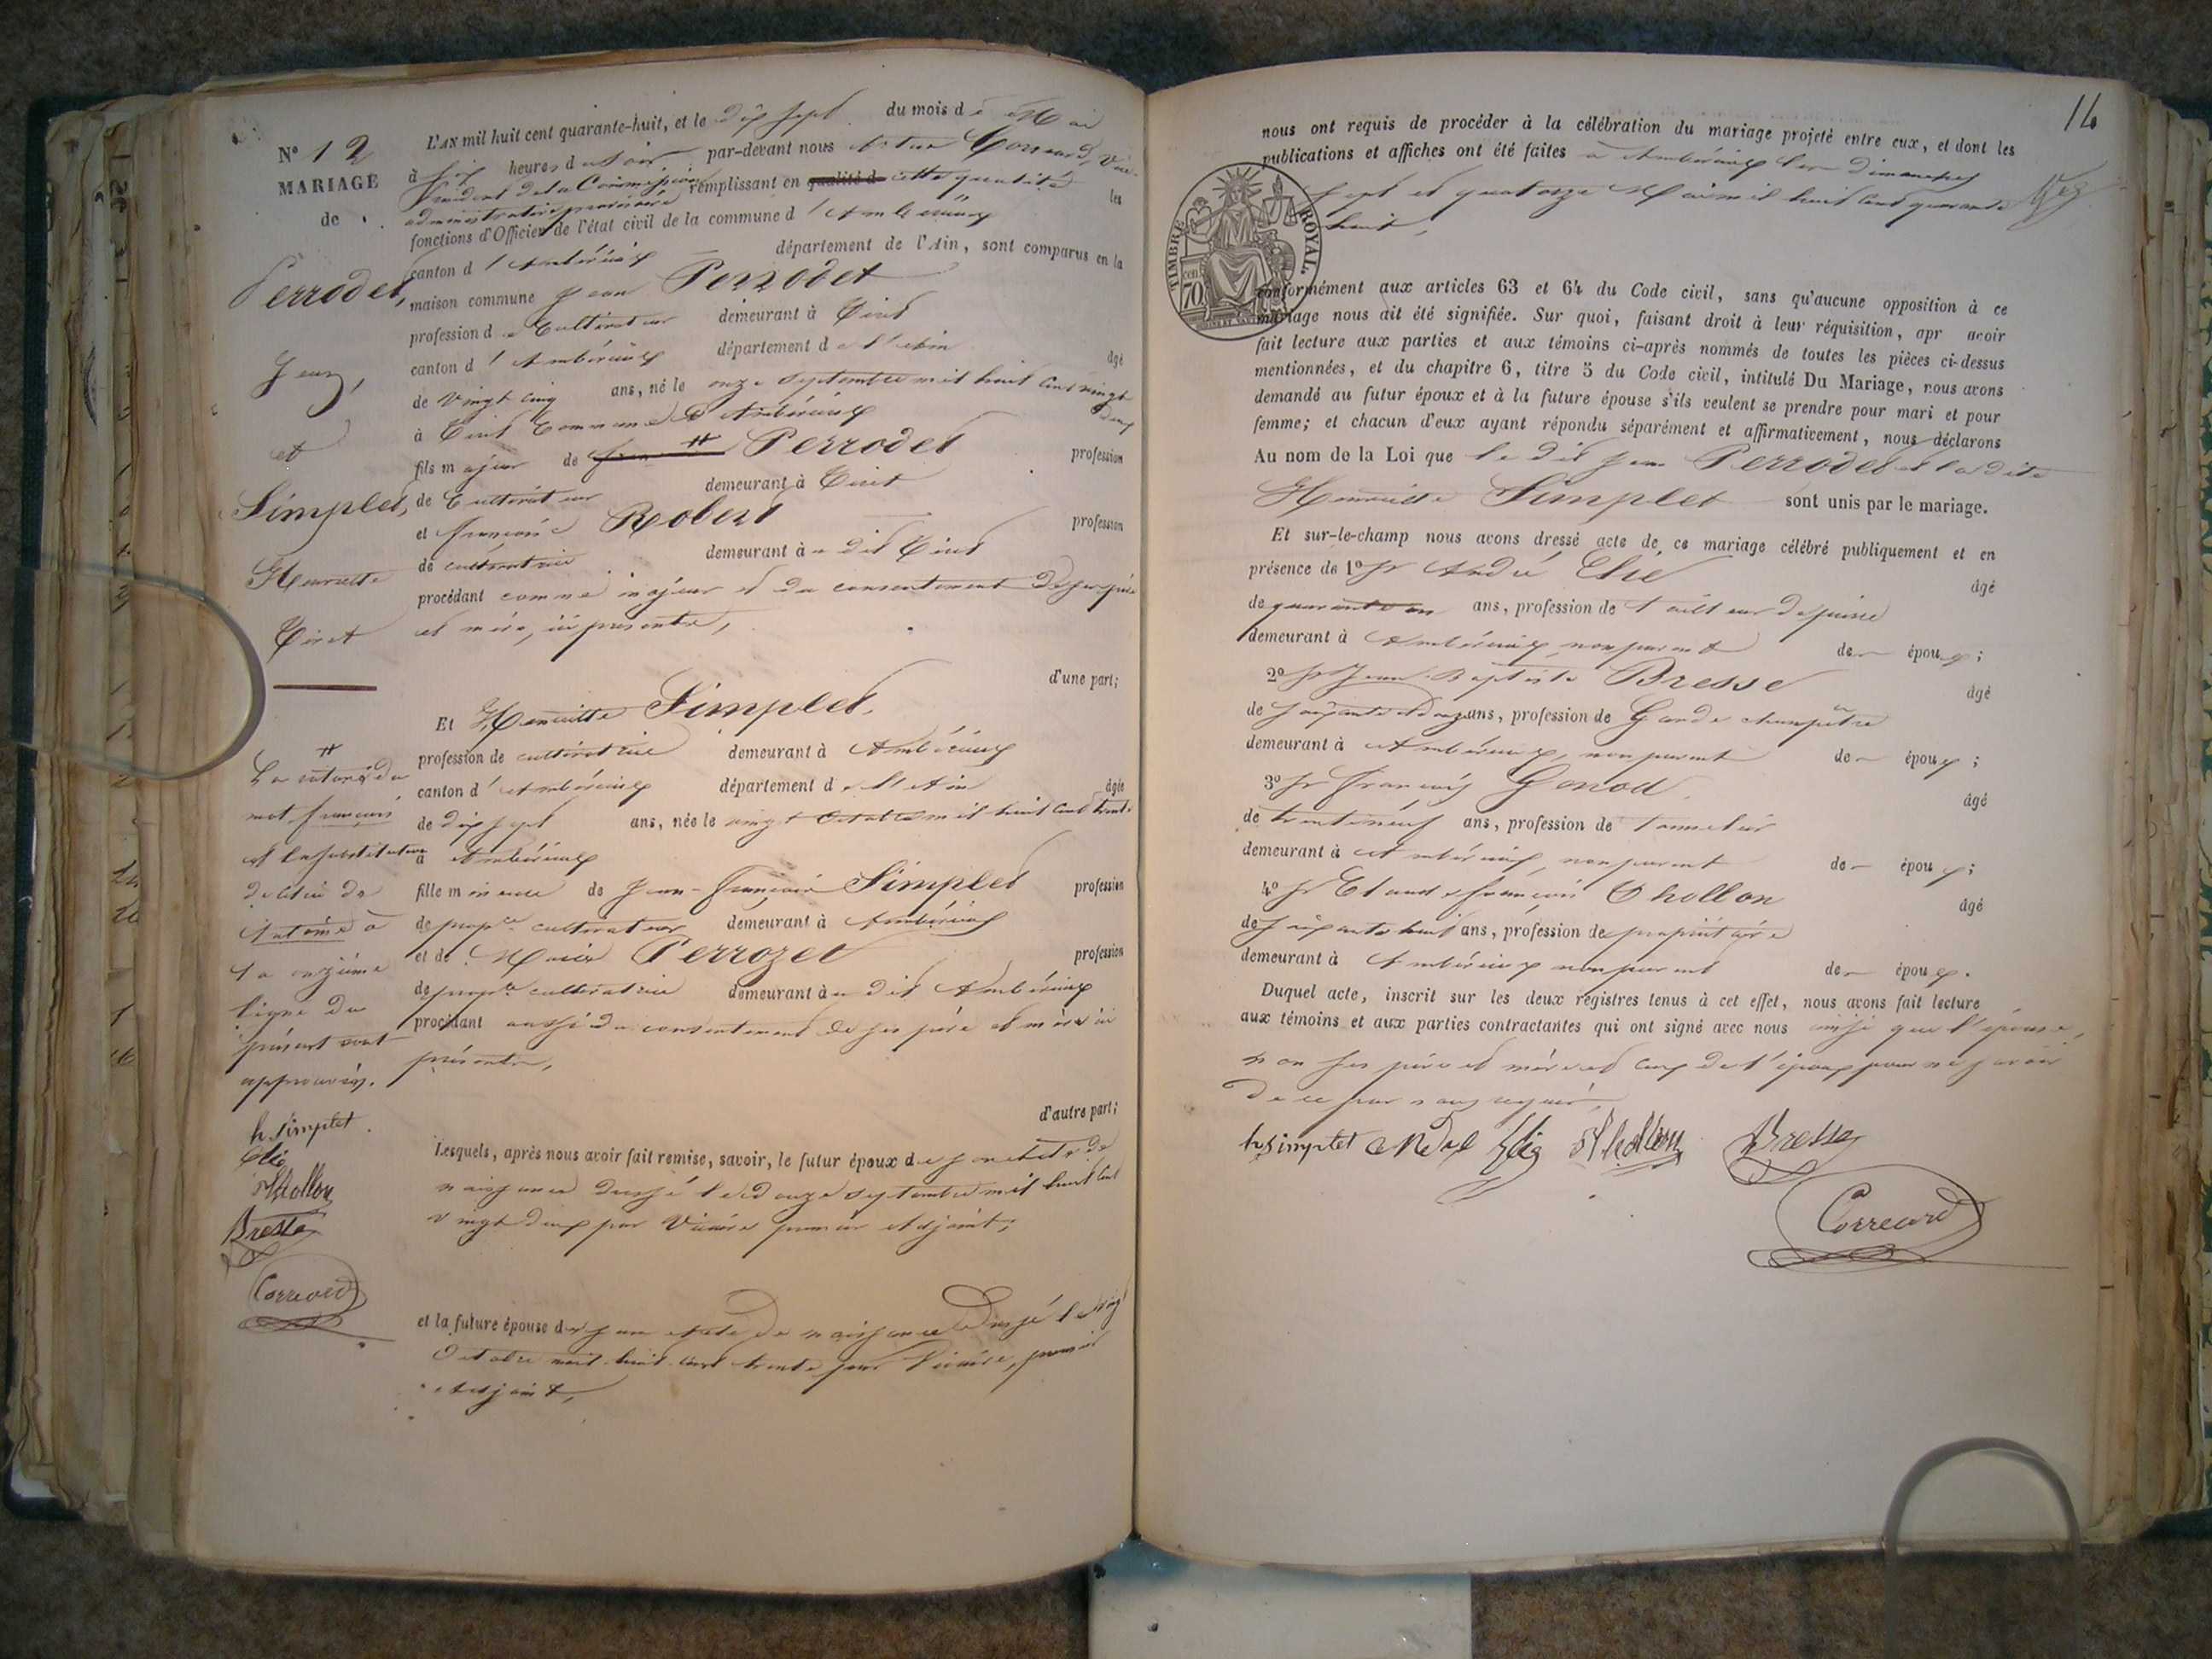 N° 12
MARIAGE
de
Perrodet,
Jean,
et
Simplet,
Henriette
Tiret
L'AN mil huit cent quarante-huit, et le dix sept du mois de Mai
à six heures du soir par-devant nous Correard, Vice-
Président de la Commission remplissant en qualité d cette qualité
administrative provisoire les
fonctions d'Officier de l'état civil de la commune d'Ambérieux
canton d'Ambérieux département de l'Ain, sont comparus en la
maison commune Jean Perrodet
profession de Cultivateur demeurant à Tiret
canton d'Ambérieux département de l'Ain
âgé
de vingt cinq ans, né le onze septembre mil huit cent vingt
deux
à Tiret Commune d'Ambérieux
fils majeur de # Perrodet profession
de Cultivateur demeurant à Tiret
et françoise Robert profession
de cultivatrice demeurant à u dit Tiret
procédant comme majeur et du consentement de ses père
et mère, ici présents,
d'une part;
Et Henriette Simplet,
profession de cultivatrice demeurant à Ambérieux
canton d'Ambérieux département de l'Ain
âgée
de dix sept ans, née le vingt Octobre mil huit cent trente
à Ambérieux
fille mineure de Jean-françois Simplet profession
de propre cultivateur demeurant à Ambérieux
et de Marie Perrozet profession
de propre cultivatrice demeurant à u dit Ambérieux
procédant aussi du consentement de ses père et mère ici
présents,
d'autre part;
Lesquels, après nous avoir fait remise, savoir, le futur époux de son acte de
naissance dressé le douze septembre mil huit cent
vingt deux par premier adjoint;
et la future épouse de son acte de naissance dressé le vingt
Octobre mil huit cent trente par premier
adjoint,
#
La rature du
mot françois
et la substitution
de celui de
Antoine à
la onzième
ligne du
présent sont
approuvés.
h Simplet
Elie
Chollon
Bresse
Correard
14
nous ont requis de procéder à la célébration du mariage projeté entre eux, et dont les
publications et affiches ont été faites à Ambérieux les Dimanches
sept et quatorze Mai mil huit cent quarante
huit,
TIMBRE ROYAL
70
conformément aux articles 63 et 64 du Code civil, sans qu'aucune opposition à ce
mariage nous ait été signifiée. Sur quoi, faisant droit à leur réquisition, apr avoir
fait lecture aux parties et aux témoins ci-après nommés de toutes les pièces ci-dessus
mentionnées, et du chapitre 6, titre 5 du Code civil, intitulé Du Mariage, nous avons
demandé au futur époux et à la future épouse s'ils veulent se prendre pour mari et pour
femme; et chacun d'eux ayant répondu séparément et affirmativement, nous déclarons
Au nom de la Loi que le dit Jean Perrodet et la dite
Henriette Simplet sont unis par le mariage.
Et sur-le-champ nous avons dressé acte de ce mariage célébré publiquement et en
présence de 1° Sr André Elie âgé
de quarante un ans, profession de tailleur de pierre
demeurant à Ambérieux, non parent de époux;
2° Sr Jean-Baptiste Bresse âgé
de ans, profession de Garde champêtre
demeurant à Ambérieux, non parent de époux;
3° Sr françois Gonod âgé
de trente neuf ans, profession de tonnelier
demeurant à Ambérieux, non parent de époux;
4° Sr Claude françois Chollon âgé
de soixante huit ans, profession de propriétaire
demeurant à Ambérieux non parent de époux.
Duquel acte, inscrit sur les deux registres tenus à cet effet, nous avons fait lecture
aux témoins et aux parties contractantes qui ont signé avec nous ainsi que l'épouse,
non ses père et mère et ceux de l'époux pour ne savoir
de ce faire requis,
h Simplet André Elie Chollon Bresse
Correard